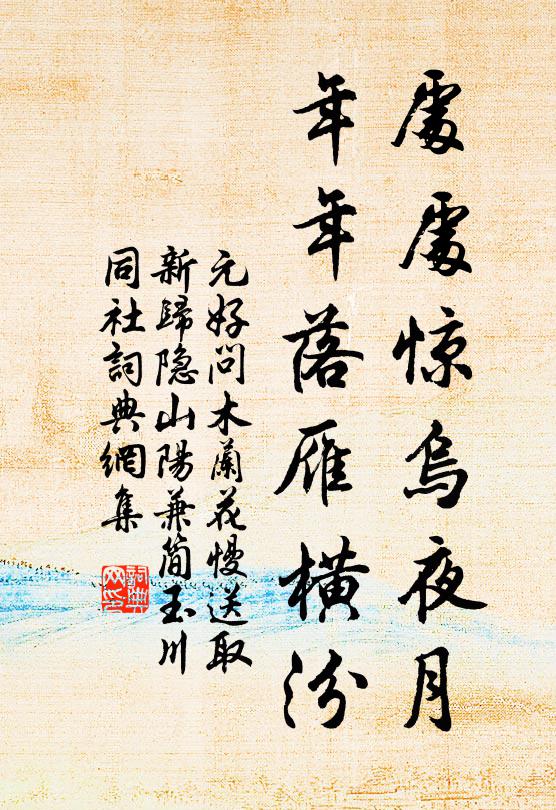 處處惊烏夜月
年年落雁横汾
元好问木蘭花慢送取
新歸隐山陽兼简玉川
同社詞典網集
詞典网印